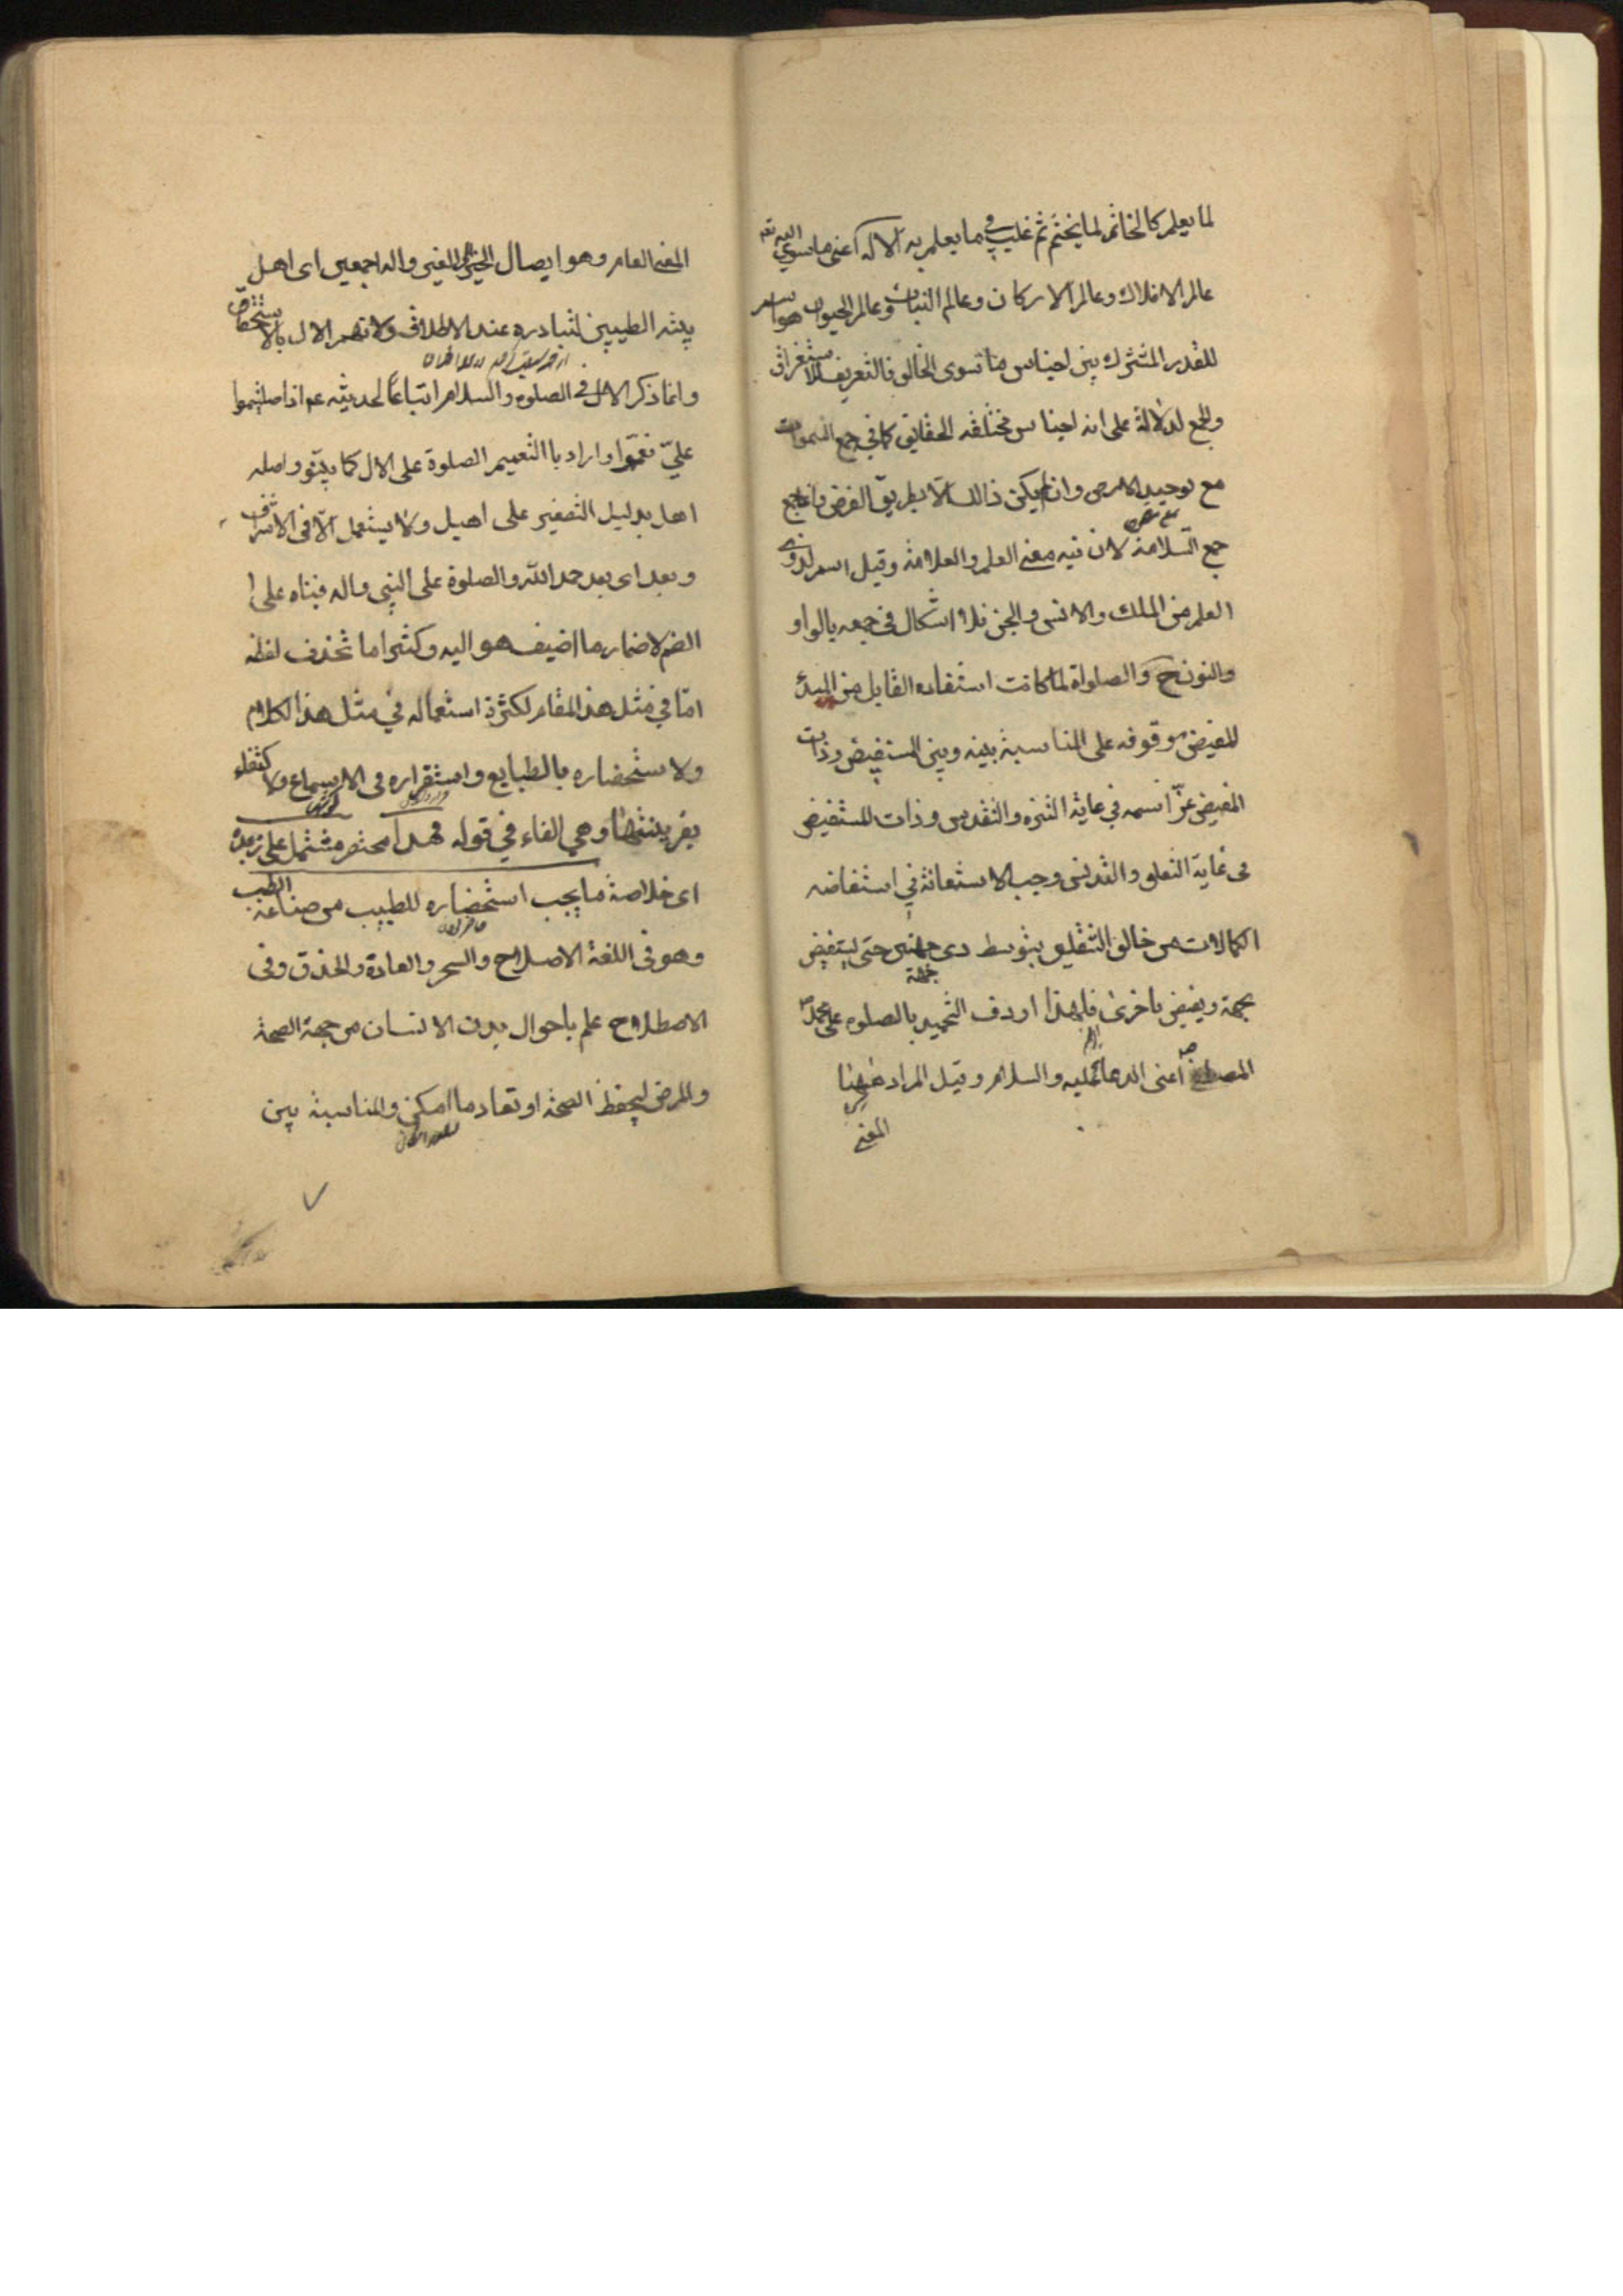 لما يعلم كالخاتم لما يختم ثم غلب في ما يعلم به الاله اعنى ما سوى الله تعه
عالم الافلاك وعالم الاركان وعالم النبات وعالم الحيوان هو اسم
للقدر المشترك بين اجناس ما سوى الخالق فالتعريف للاستغراق
والجمع لدلالة على انه اجناس مختلفه الحقايق كما في جمع السموات
مع توحيد الارض وان لم يكن ذالك الا بطريق الفرض وانما جمع
جمع السلامة لان فيه معنى العلم والعلامة وقيل اسم لذوي
العلم من الملك والانس والجن فلا اشكال في جمعه بالواو
والنون ح والصلواة لما كانت استفاده القابل من المبدئ
المفيض موقوفه على المناسبة بينه وبين المستفيض وذات
المفيض عز اسمه في غاية التنزه والتقدس وذات المستفيض
في غاية التعلق والتدنس وجب الاستعانة في استفاضه
الكمالات من خالق بتوسط ذى جهتين حتى ليستفيض
بجهة ويفيض باخرى فلهذا اردف التحميد بالصلوه على محمد
المصطفى اعنى الدعا عليه والسلام وقيل المراد هيهنا
المعنى
المعنى العام وهو ايصال الخير الى الغير واله اجمعين اى اهل
بيته الطيبين لتبادره عند الاطلاق ولا تهم الال بالاستحقاق
وانما ذكر الال في الصلوه والسلام اتباعًا لحديثه عم اذا صليتموا
عليّ فعموا واراد باالتعميم الصلوة على الال كما واصله
اهل بدليل التصغير على اهيل ولا يستعمل الّا فى الاشراف
وبعد اى بعد حمد الله والصلوة على النبى واله فبناه على ا
الضم لاضمار ما اضيف هو اليه وكثيرا ما تحذف لفظة
امّا في مثل هذ المقام لكثرة استعماله في مثل هذ الكلام
ولا ستحضاره بالطبايع واستقراره فى الاسماع ولا كتفاء
بقرينتها وهي الفاء في قوله فهذا مختصر مشتمل على زبدة
اى خلاصة ما يجب استحضاره للطبيب من صناعة الطب
وهو فى اللغة الاصلاح والسحر والعادة والحذق وفى
الاصطلاح علم باحوال بدن الانسان من جهة الصحة
والمرض ليحفظ الصحة او تعاد ما امكن والمناسبة بين